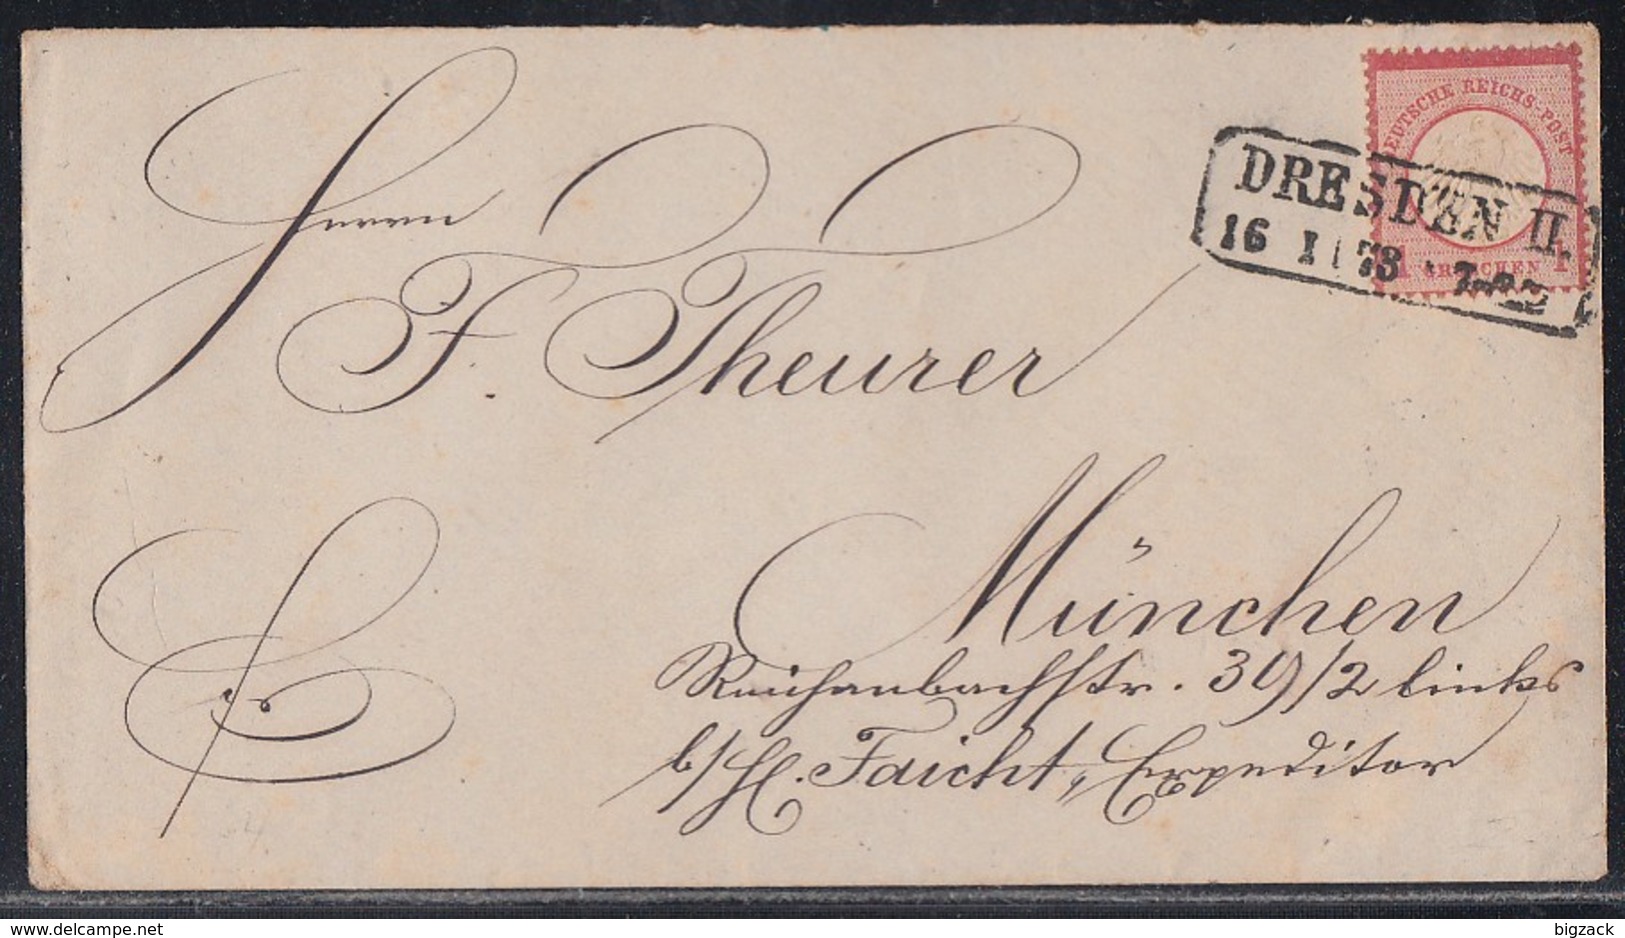 DEUTSCHE REICHS-POST
1 GROSCHEN 1
DRESDEN II.
16 I 73
Herrn
F. Theurer
München
Reichenbachstr. 39/2 links
b/H. Faicht, Expeditor
delcampe.net
bigzack